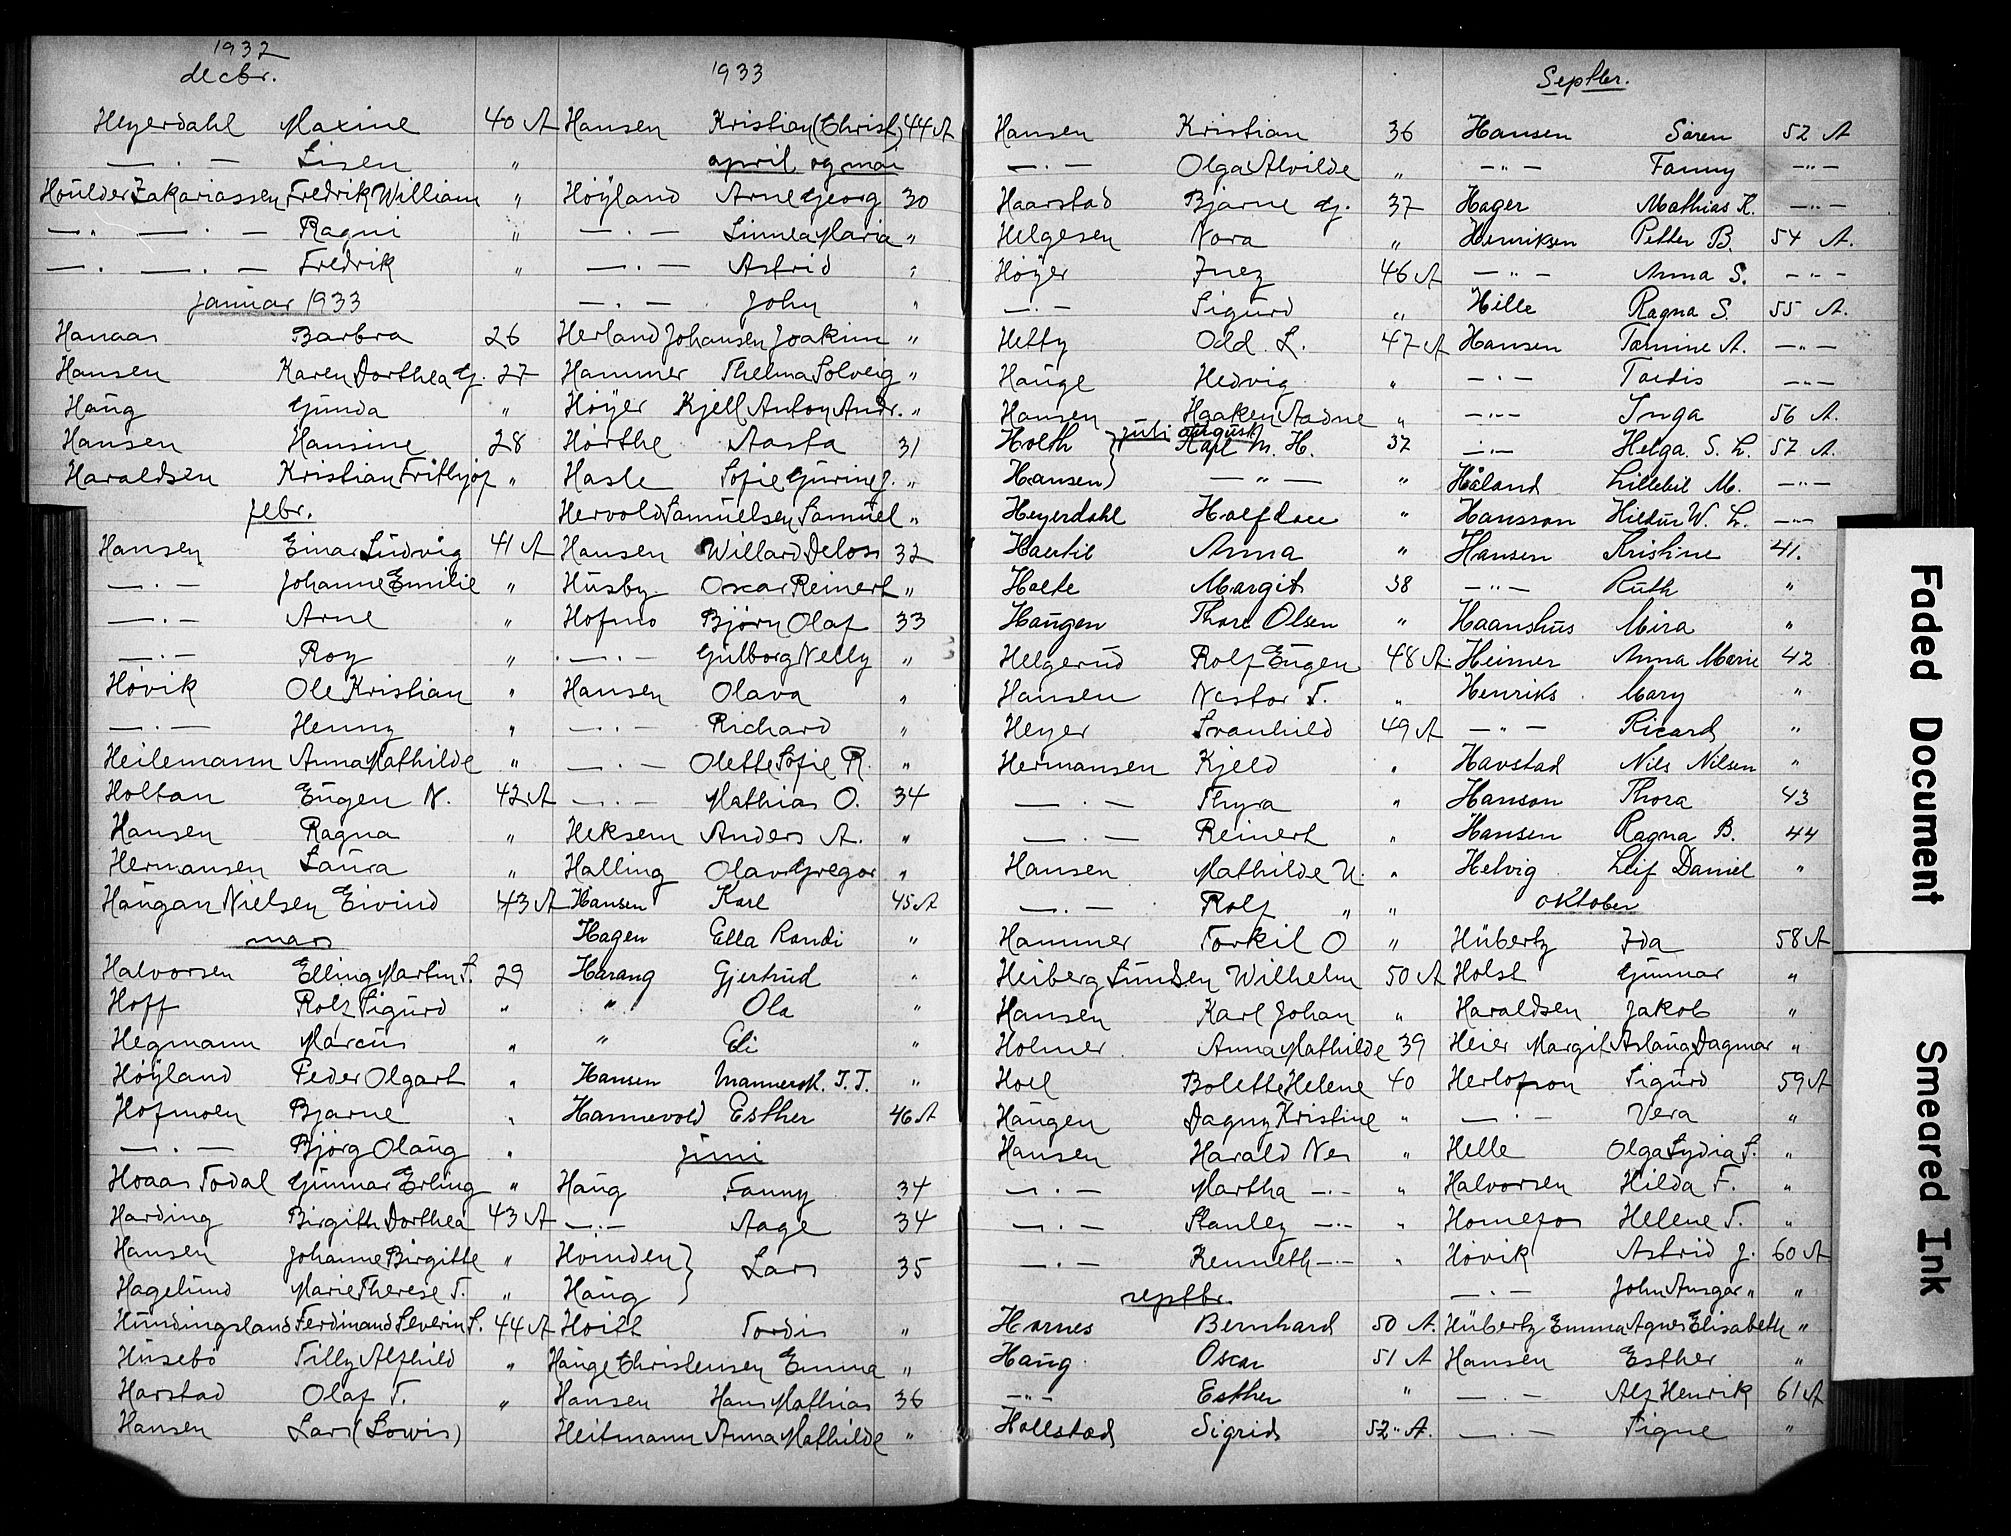 1932
decbr.
Heyerdahl Maxine 40 A
— . — Lisen "
Houlder Zakariassen Fredrik William "
— . — . — Ragni "
— . — . — Fredrik "
januar 1933
Hanaas Barbra 26
Hansen Karen Dorthea G. 27
Haug Gunda "
Hansen Hansine 28
Haraldsen Kristian Frithjof "
febr.
Hansen Einar Ludvig 41 A
— . — Johanne Emilie "
— . — Arne "
— . — Roy "
Hövik Ole Kristian "
— . — Henny "
Heilemann Anna Mathilde "
Holtan Eugen N. 42 A
Hansen Ragna "
Hermansen Laura "
Haugan Nielsen Eivind 43 A
mars
Halvorsen Elling Martin S. 29
Hoff Rolf Sigurd "
Hegmann Marcus "
Höyland Peder Olgart "
Hofmoen Bjarne "
— . — Björg Olaug "
Hoaas Todal Gunnar Erling "
Harding Birgith Dorthea 43 A
Hansen Johanne Birgitte "
Hagelund Marie Therese T. "
Hundingsland Ferdinand Severin S. 44 A
Husebö Tilly Alfhild "
Harstad Olaf T. "
Hansen Lars (Lowis)
1933
Hansen Kristian (Christ) 44 A
april og mai
Höyland Arne Georg 30
— . — Linnea Maria "
— . — Astrid "
— . — John "
Herland Johansen Joakim "
Hammer Thelma Solveig "
Höyer Kjell Anton Andr. "
Hörthe Aasta 31
Hasle Sofie Guring J. "
Hervold Samuelsen Samuel "
Hansen Willard Delos 32
Husby Oscar Reinert "
Hofmo Björn Olaf 33
— . — Gulborg Nelly "
Hansen Olava "
— . — Richard "
— . — Olette Sofie R. "
— . — Mathias O. 34
Heksem Anders A. "
Halling Olav Gregor "
Hansen Karl 45 A
Hagen Ella Randi "
Harang Gjertrud "
" Ola "
" Eli "
Hansen Mannersk. T. T. "
Hannevold Esther 46 A
juni
Haug Fanny 34
— . — Aage 34
Hvinden } Lars 35
Haug }
Hoitt Tordis "
Hauge Christensen Emma "
Hansen Hans Mathias 36
Heitmann Anna Mathilde "
Hansen Kristian 36
— . — Olga Alvilde "
Haarstad Bjarne G. 37
Helgesen Nora "
Höyer Inez 46 A
— . — Sigurd "
Hetty Odd L. 47 A
Hauge Hedvig "
Hansen Haaken Aadne "
juli august
Holth } Karl M. H. 37
Hansen } — " — "
Heyerdahl Halfdan "
Haertil Anna "
Holte Margit 38
Haugen Thore Olsen "
Helgerud Rolf Eugen 48 A.
Hansen Nestor T. "
Heyer Svanhild 49 A
Hermansen Kjeld "
— . — Thyra "
— . — Reinert "
Hansen Mathilde U. "
— . — Rolf " "
Hammer Torkil O "
Heiberg Lundsen Wilhelm 50 A
Hansen Karl Johan "
Holmer Anna Mathilde 39
Hoel Bolette Helene 40
Haugen Dagny Kristine "
Hansen Harald Nes "
— . — Martha — . — "
— . — Stanley — . — "
— . — Kenneth — . — "
septbr.
Harnes Bernhard 50 A.
Haug Oscar 51 A
— " — Esther "
Hollstad Sigrid 52 " A.
Septbr.
Hansen Sören 52 A
— " — Fanny — " —
Hager Mathias K. — " —
Henriksen Petter B. 54 A.
— " — Anna S. — " —
Hille Ragna S. 55 A.
Hansen Tamine A. — " —
— . — Tordis — " —
— " — Inga 56 A.
— . — Helga S. L. 57 A.
Håland Lillebil M. — " —
Hansson Hildur W. L. — " —
Hansen Kristine 41.
— " — Ruth "
Haanshus Mira "
Heimer Anna Marie 42
Henriks Mary "
— " — Ricard "
Havstad Nils Nilsen "
Hanson Thora 43
Hansen Ragna B. 44
Helvig Leif Daniel "
oktober
Hübertz Ida 58 A
Holst Gunnar "
Haraldsen Jakob "
Heier Margit Aslaug Dagmar "
Herlofson Sigurd 59 A
— . — Vera "
Helle Olga Lydia S. "
Halvorsen Hilda F. "
Homefos Helene T. "
Hövik Astrid J. 60 A
— . — John Ansgar " "
Hübertz Emma Agnes Elisabeth "
Hansen Esther "
— . — Alf Henrik 61 A
— . — Signe "
Faded Document
Smeared Ink